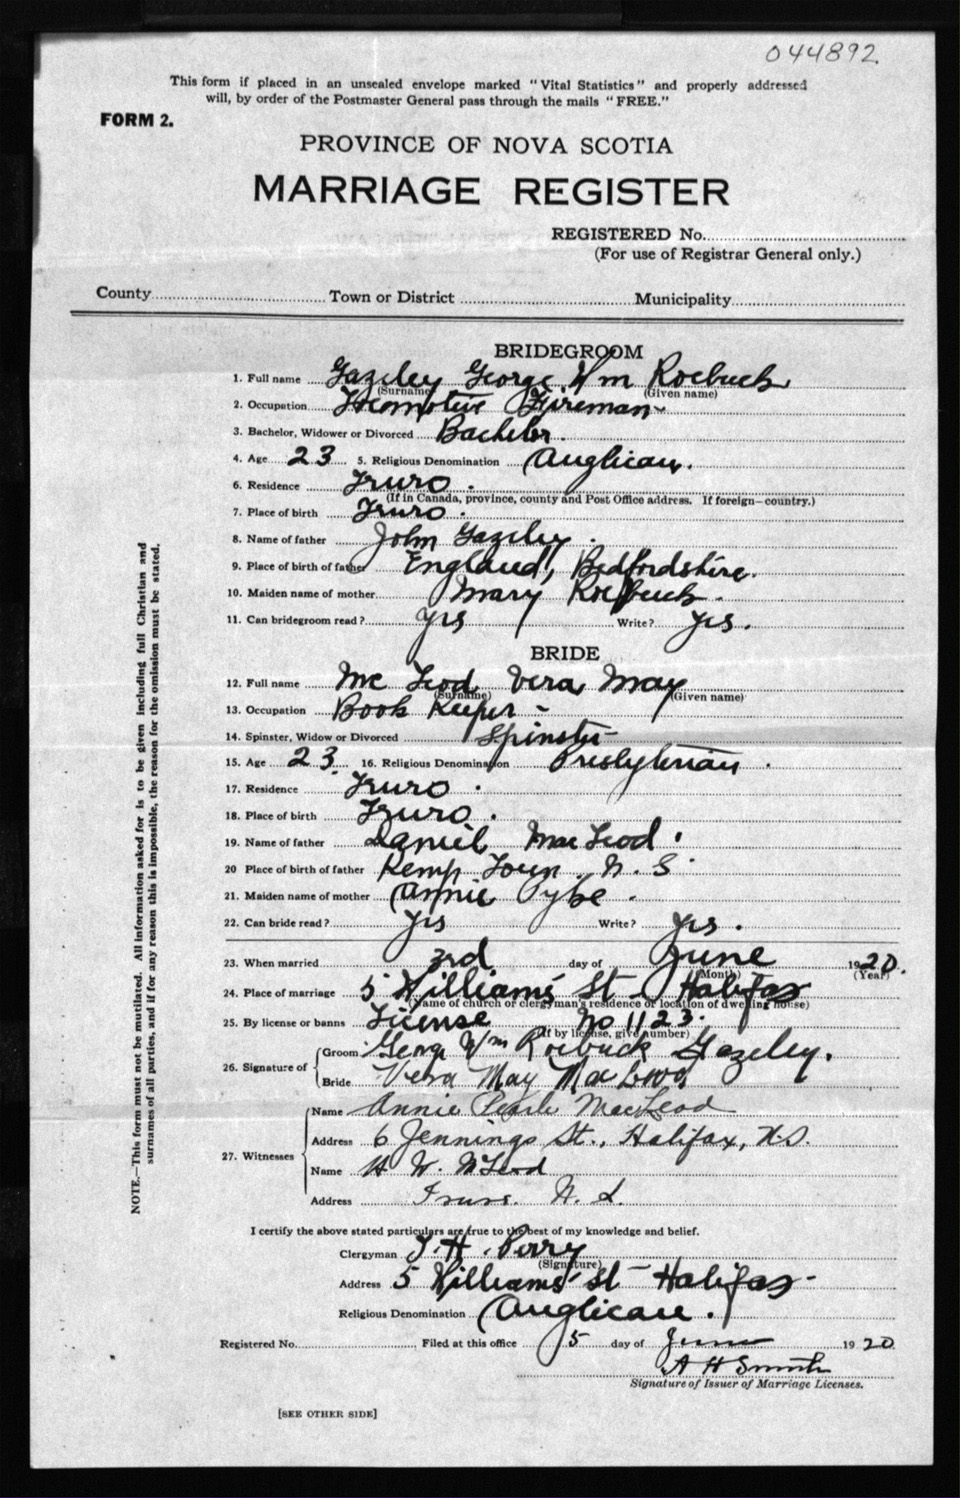 044892
This form if placed in an unsealed envelope marked "Vital Statistics" and properly addressed
will, by order of the Postmaster General pass through the mails "FREE."
FORM 2.
PROVINCE OF NOVA SCOTIA
MARRIAGE REGISTER
REGISTERED No.
(For use of Registrar General only.)
County Town or District Municipality
BRIDEGROOM
1. Full name Gazeley George Wm Roebuck
(Surname) (Given name)
2. Occupation Locomotive Fireman
3. Bachelor, Widower or Divorced Bachelor.
4. Age 23 5. Religious Denomination Anglican.
6. Residence Truro.
(If in Canada, province, county and Post Office address. If foreign—country.)
7. Place of birth Truro.
8. Name of father John Gazeley.
9. Place of birth of father England, Bedfordshire.
10. Maiden name of mother Mary Roebuck.
11. Can bridegroom read? Yes Write? Yes.
BRIDE
12. Full name Mc Leod Vera May
(Surname) (Given name)
13. Occupation Book Keeper -
14. Spinster, Widow or Divorced Spinster
15. Age 23. 16. Religious Denomination Presbyterian.
17. Residence Truro.
18. Place of birth Truro.
19. Name of father Daniel MacLeod.
20 Place of birth of father Kemp Town. N. S.
21. Maiden name of mother Annie Pyke.
22. Can bride read? Yes Write? Yes.
23. When married 3rd day of June 1920.
(Month) (Year)
24. Place of marriage 5 Williams St - Halifax
(Name of church or clergyman's residence or location of dwelling house)
25. By license or banns License No 1123.
(If by license, give number)
26. Signature of
Groom Georg Wm Roebuck Gazeley.
Bride Vera May MacLeod
27. Witnesses
Name Annie Pearle MacLeod
Address 6 Jennings St., Halifax, N.S.
Name H W. McLeod
Address Truro. N. S.
I certify the above stated particulars are true to the best of my knowledge and belief.
Clergyman T. H. Perry
(Signature)
Address 5 Williams St - Halifax -
Religious Denomination Anglican.
Registered No. Filed at this office 5 day of June 1920.
A H Smith
Signature of Issuer of Marriage Licenses.
[SEE OTHER SIDE]
NOTE.—This form must not be mutilated. All information asked for is to be given including full Christian and
surnames of all parties, and if for any reason this is impossible, the reason for the omission must be stated.